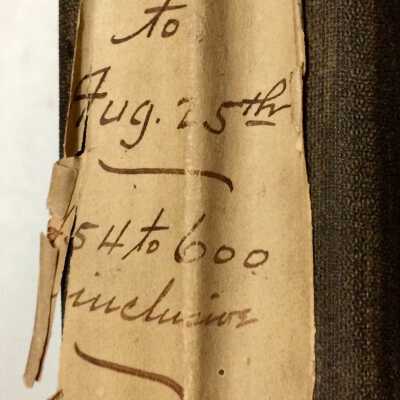 to
Aug. 25th
454 to 600
inclusive